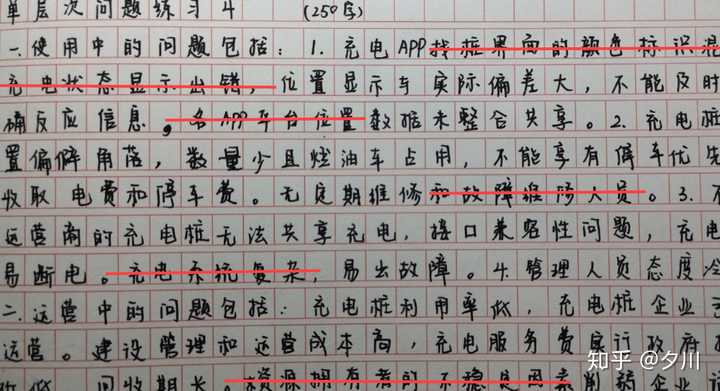 单层次问题练习4 (250字)
一、使用中的问题包括：1.充电APP找桩界面的颜色标识混
充电状态显示出错，位置显示与实际偏差大，不能及时
确反应信息。各APP平台位置数据未整合共享。2.充电桩
置偏僻角落，数量少且燃油车占用，不能享有停车优先
收取电费和停车费。无定期维修和故障维修人员。3.不
运营商的充电桩无法共享充电，接口兼容性问题，充电
易断电。充电系统复杂，易出故障。4.管理人员态度冷
二、运营中的问题包括：充电桩利用率低，充电桩企业
运营。建设管理和运营成本高，充电服务费实行政府
低，回收期长。资源拥有者的不稳
知乎 @夕川